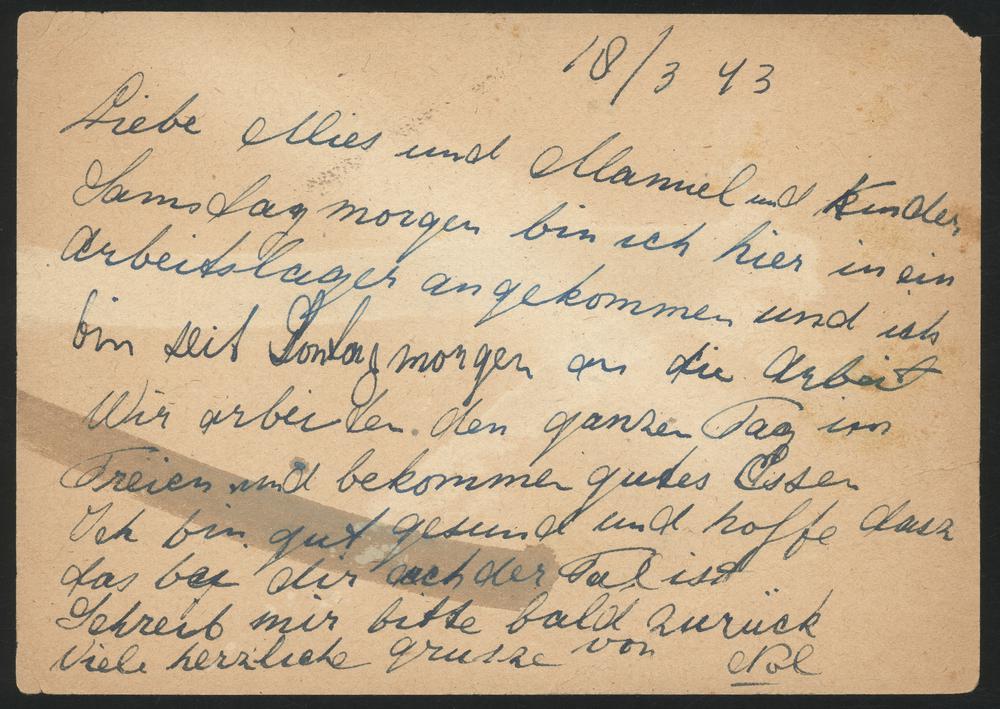 18/3 43
Liebe Mies und Manuel und Kinder
Samstag morgen bin ich hier in ein
Arbeitslager angekommen und ich
bin seit Sontag morgen an die Arbeit
Wir arbeiten den ganzen Tag im
Freien und bekommen gutes Essen
Ich bin gut gesund und hoffe dasz
das bei dir auch der Fal ist
Schreib mir bitte bald zurück
Viele herzliche grusze von Nol